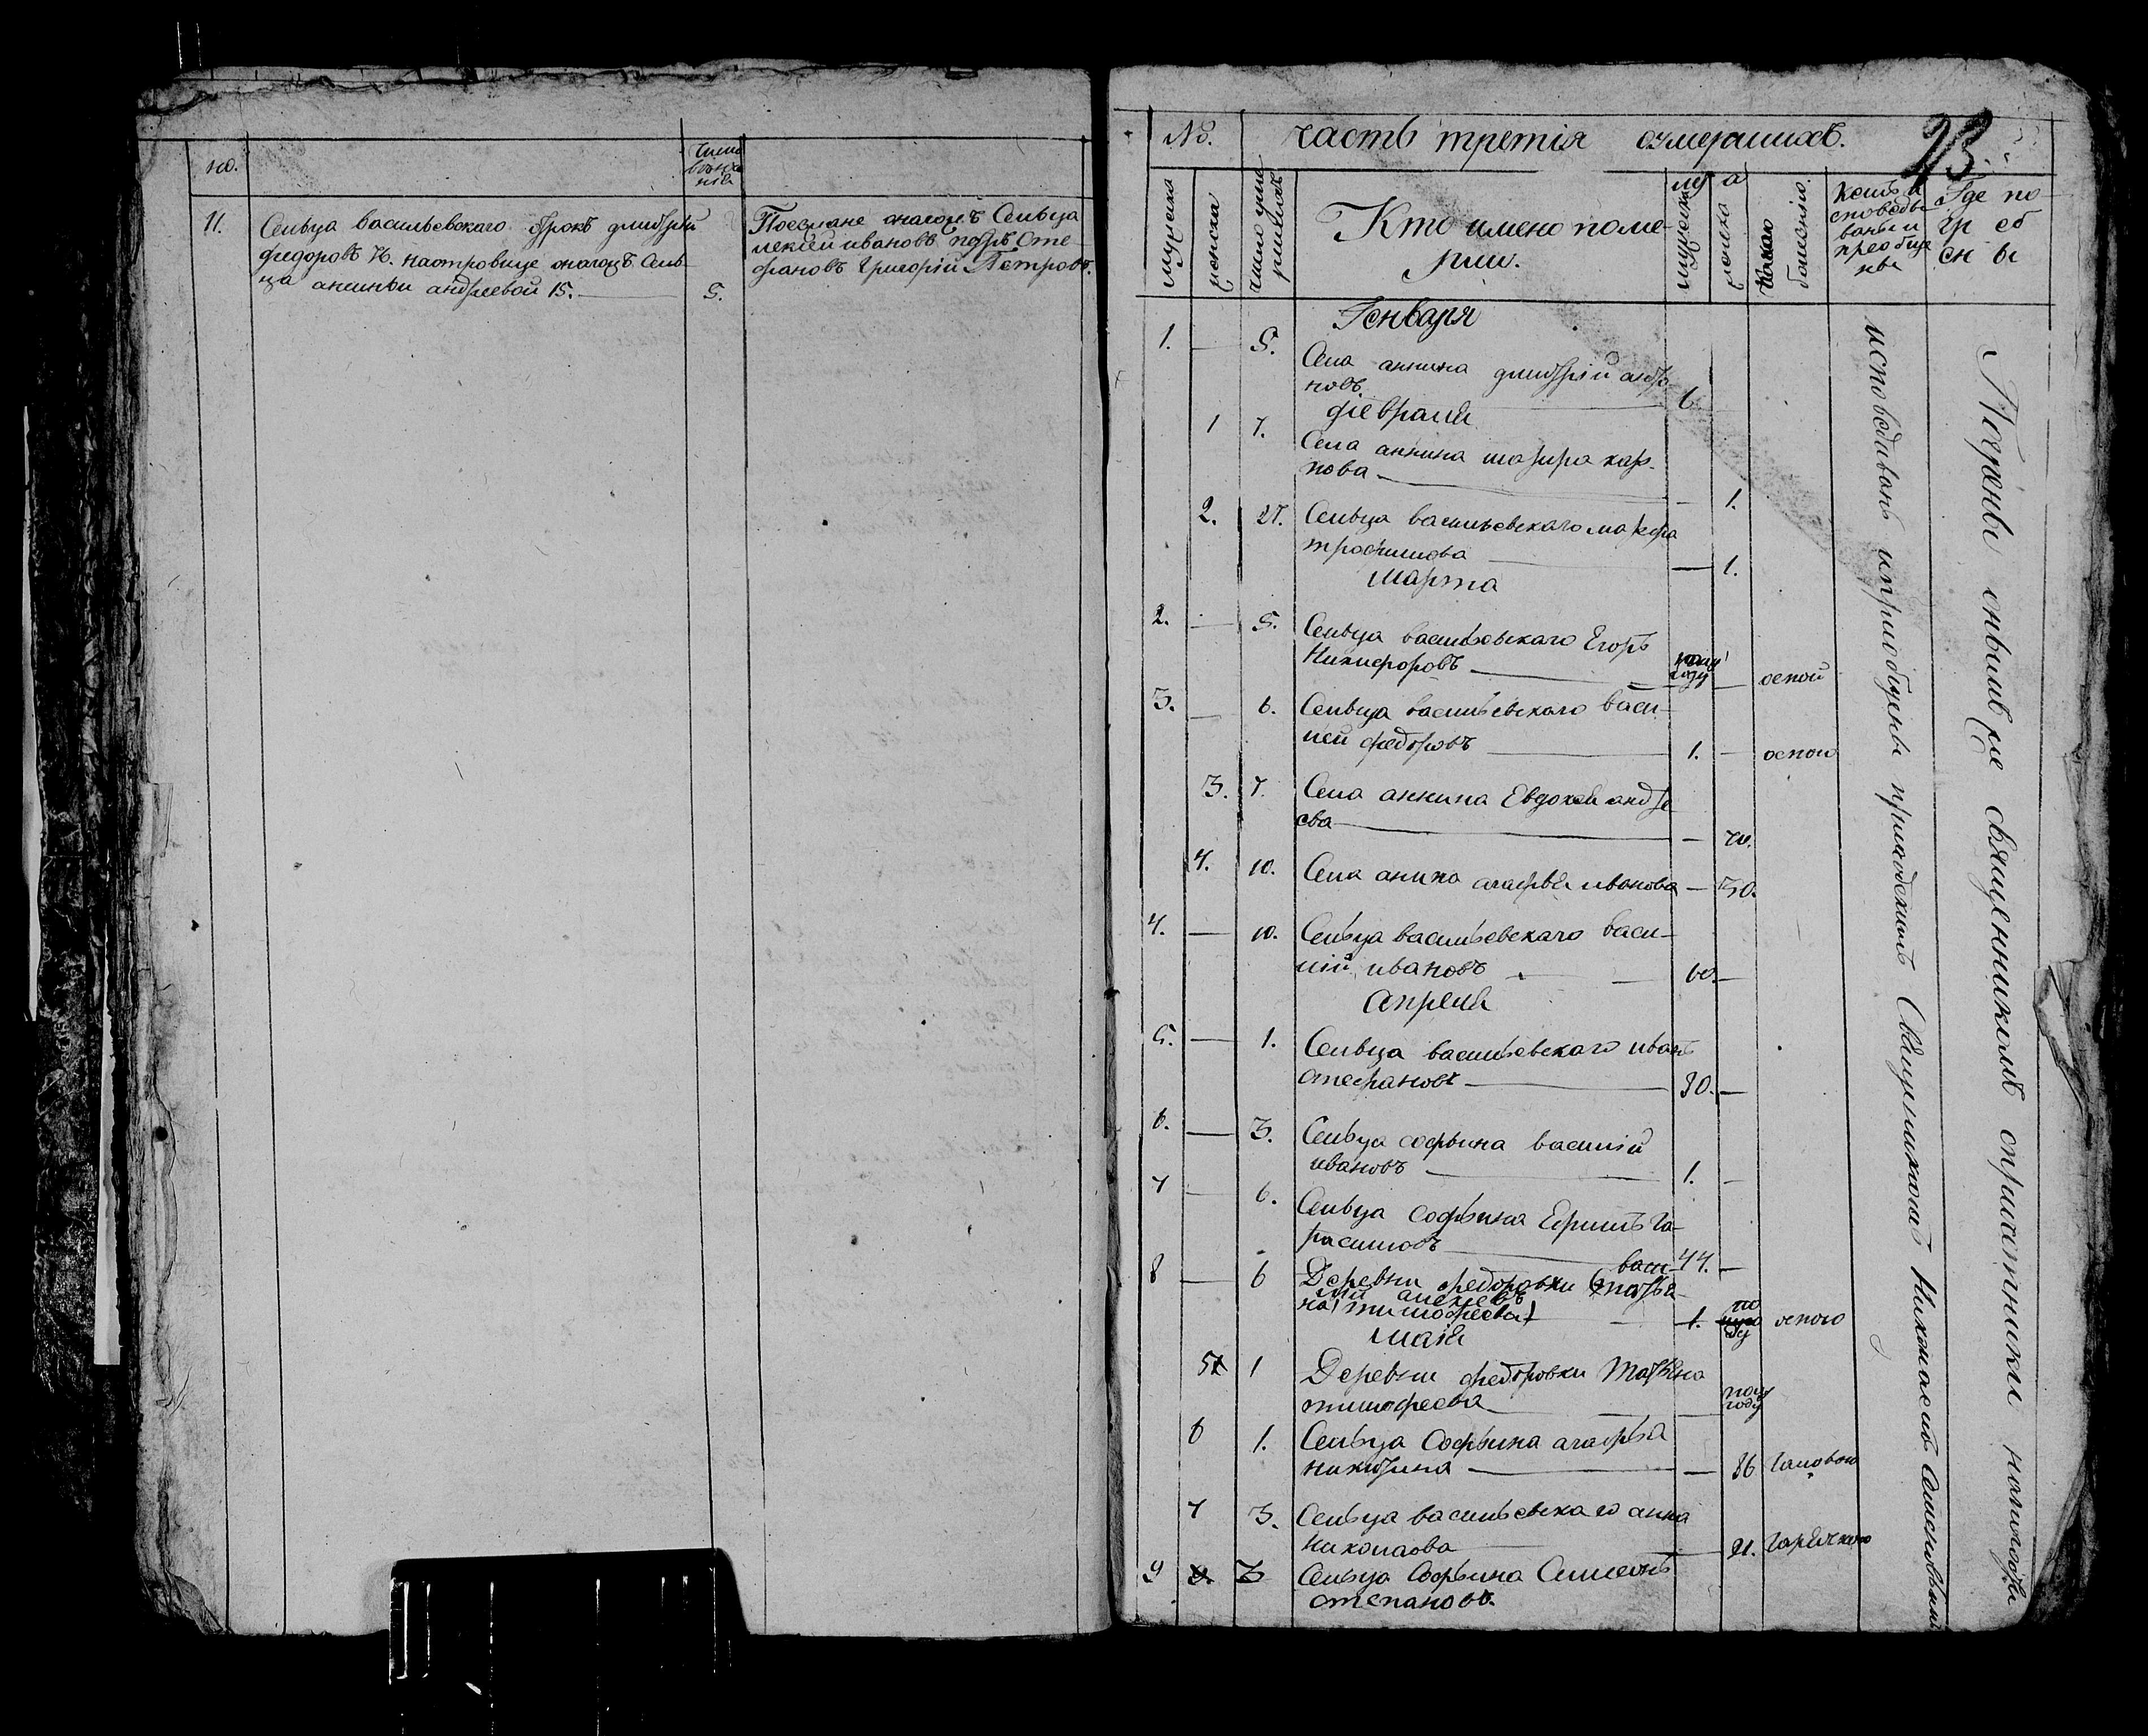 но.
число
11.
Сельца васильевского отрокъ дмитрий
федоровъ 16. настровице оногожъ Сель-
ца аксиньи андреевой 15.
5.
Поезжане оногожъ Сельца
лексей ивановъ петръ сте-
фановъ григорий Петровъ.
No. часть третія о умершихъ.
23.
мужеска
женска
число умершихъ
Кто имено поме-
рли.
лѣта
мужеска
женска
какою болезнію.
кемъ и
споведы
ваны и
преобще
ны
Где по-
гр еб
ен ы
Генваря
1. — 5. Села аннина дмитрій андро-
новъ 6
февраля
1 7. Села аннина мавра кар-
пова — 1.
2. 27. Сельца васильевскаго мавра
трофимова — 1.
марта
2. — 5. Сельца васильевскаго Егоръ
Никифоровъ полу году — оспой
3. — 6. Сельца васильевскаго васи-
лей федоровъ 1. — оспою
3. 7. Села аннина Евдокея андре
ева — 70.
4. 10. Села анина агафья иванова — 30.
4. — 10. Сельца васильевскаго васи-
лій ивановъ 60. —
апреля
5. — 1. Сельца васильевскаго иванъ
стефановъ 30. —
6. — 3. Сельца софьина василій
ивановъ 1. —
7 — 6. Сельца софьина Ефимъ га-
расимовъ 44. —
8 — 6 Деревни федоровки васи-
лій алексевъ
на тимофеева 1. оспою
маія
5 1 Деревни федоровки Матрена
тимофеева полу году
6 1. Сельца Софьина агафья
никитина — 36 головою
7 3. Сельца васильевскаго анна
николаова — 21. горячкою
9 3 Сельца Софьина Симеонъ
степановъ.
исповедываны и приобщены приходскимъ Священникомъ Николаемъ Симеоновымъ
Погребены онымъ же священникомъ спричетники напогосте